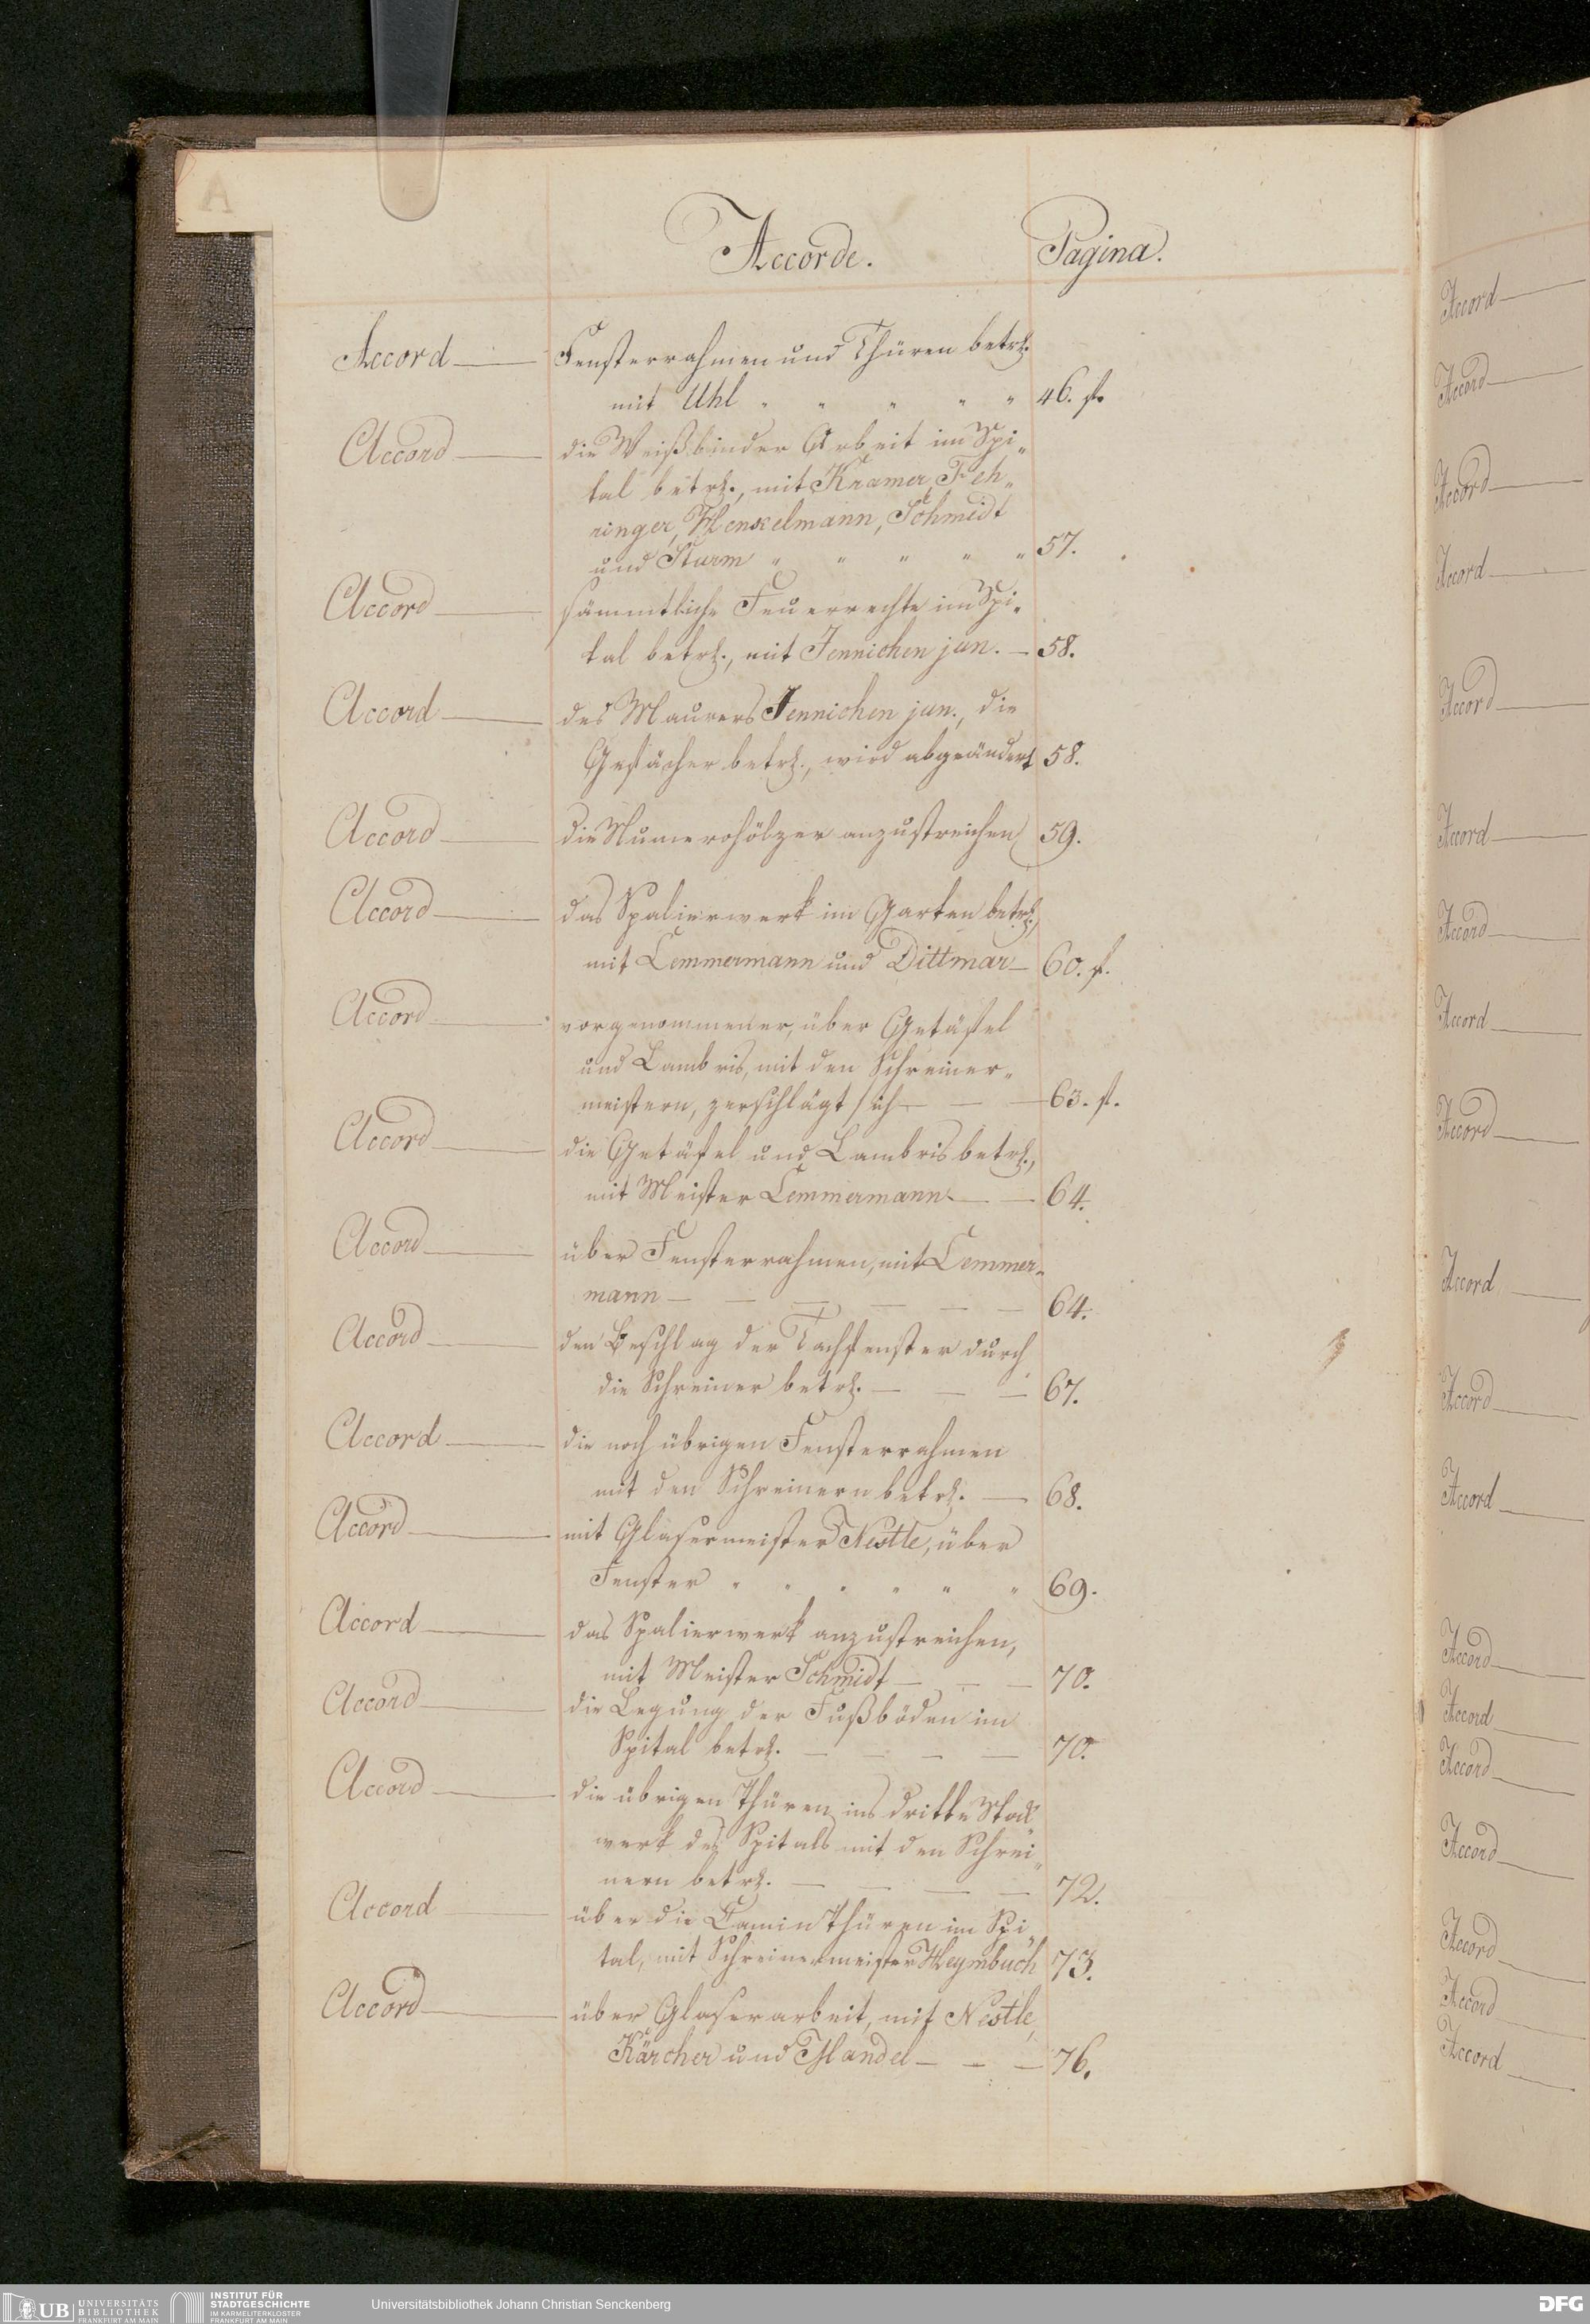 A
Accorde. Pagina.
Accord — Fensterrahmen und Thüren betrf.
mit Uhl " " " " " 46. f.
Accord — die Weißbinder Arbeit im Spi„
tal betrf., mit Kramer, Feh„
ringer, Henkelmann, Schmidt
und Sturm " " " " " 57.
Accord — sämmtliche Feuerrechte im Spi„
tal betrf., mit Jennichen jun. — 58.
Accord — des Maurers Jennichen jun., die
Gefächer betrf., wird abgeändert 58.
Accord — die Numerohölzer anzustreichen 59.
Accord — das Spalierwerk im Garten betrf.,
mit Lemmermann und Dittmar — 60. f.
Accord — vorgenommener, über Getäfel
und Lambris, mit den Schreiner„
meistern, zerschlägt sich — — — 63. f.
Accord — die Getäfel und Lambris betrf.,
mit Meister Lemmermann — — 64.
Accord — über Fensterrahmen, mit Lemmer„
mann — — — — — — 64.
Accord — den Beschlag der Dachfenster durch
die Schreiner betrf. — — — 67.
Accord — die noch übrigen Fensterrahmen
mit den Schreinern betrf. — 68.
Accord — mit Glasermeister Nestle, über
Fenster " " " " " " 69.
Accord — das Spalierwerk anzustreichen,
mit Meister Schmidt — — — 70.
Accord — die Legung der Fußböden im
Spital betrf. — — — — 70.
Accord — die übrigen Thüren ins dritte Stock„
werk des Spitals mit den Schrei„
nern betrf. — — — — 72.
Accord — über die Camin Thüren im Spi„
tal, mit Schreinermeister Heymbuch 73.
Accord — über Glaserarbeit, mit Nestle,
Kärcher und Handel — — — 76.
Accord —
Accord —
Accord —
Accord —
Accord —
Accord —
Accord —
Accord —
Accord —
Accord —
Accord —
Accord —
Accord —
Accord —
Accord —
Accord —
Accord —
Accord —
Accord —
UB UNIVERSITÄTS
BIBLIOTHEK
FRANKFURT AM MAIN
INSTITUT FÜR
STADTGESCHICHTE
IM KARMELITERKLOSTER
FRANKFURT AM MAIN
Universitätsbibliothek Johann Christian Senckenberg
DFG